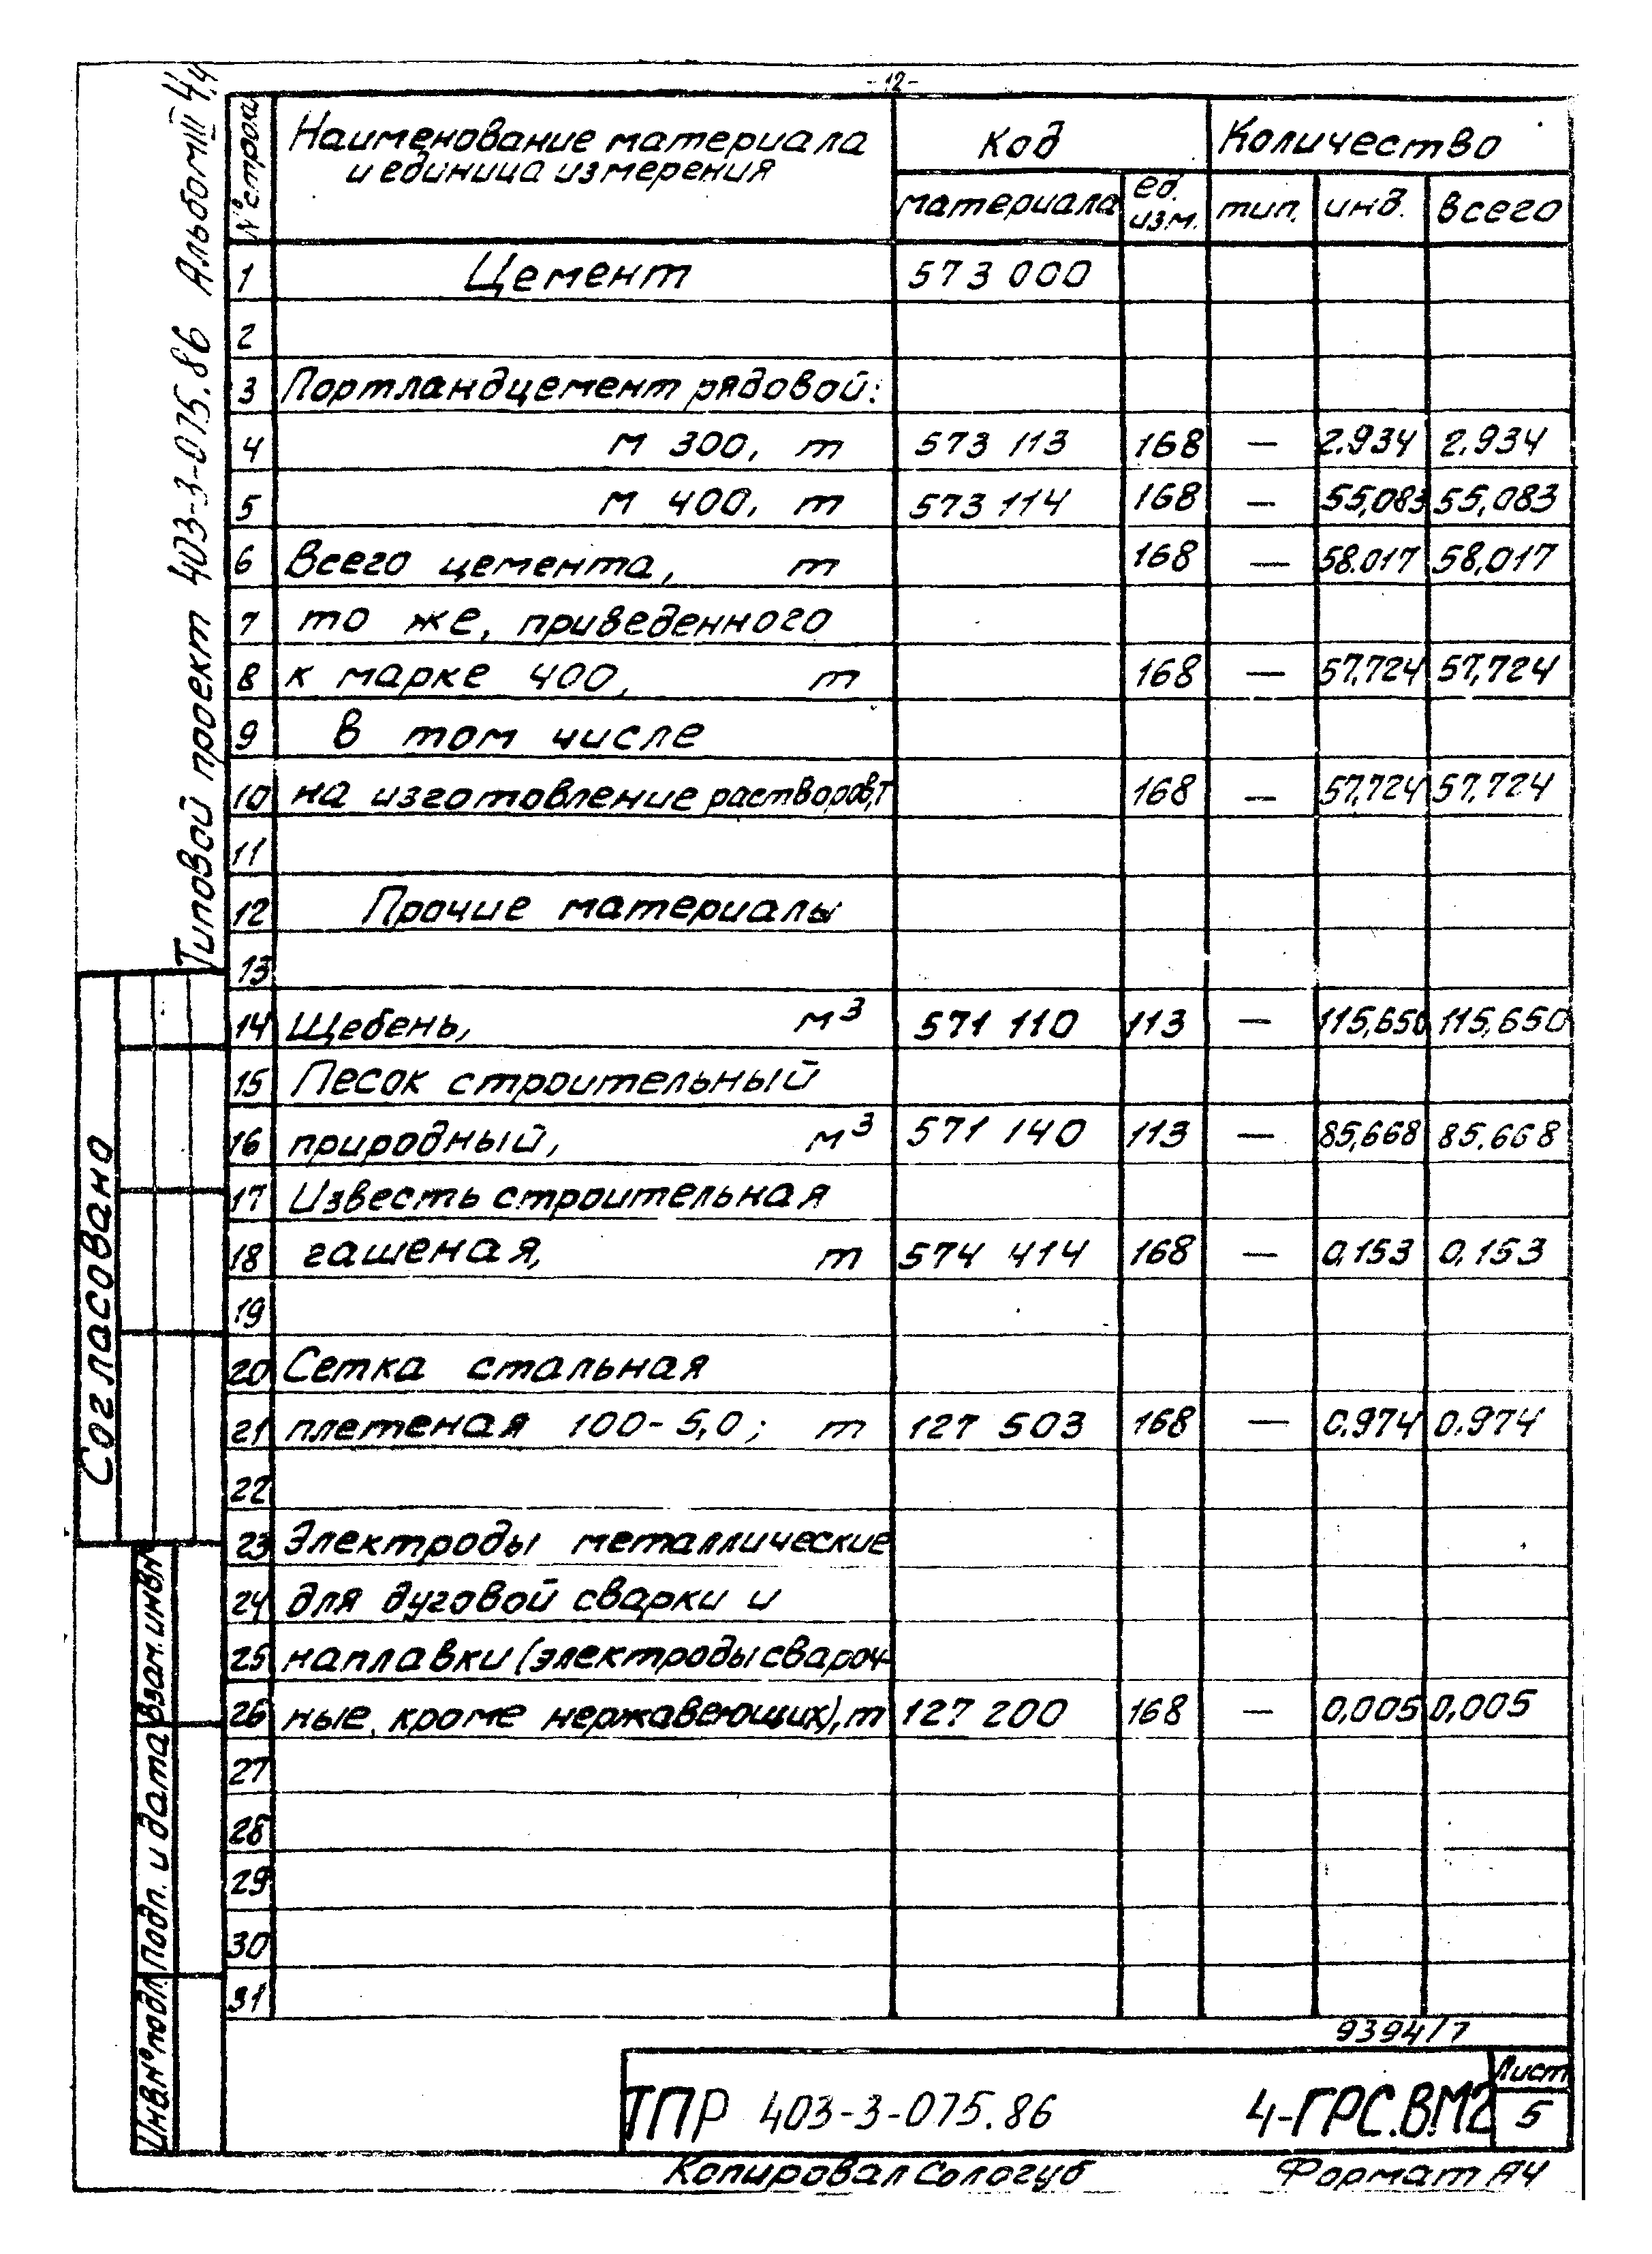 -12-
Типовой проект 403-3-075.86 Альбом III ч.4
№ строки Наименование материала и единица измерения Код Количество
материала ед. изм. тип. инд. всего
1 Цемент 573 000
2
3 Портландцемент рядовой:
4 М 300, т 573 113 168 — 2.934 2.934
5 М 400, т 573 114 168 — 55,083 55,083
6 Всего цемента, т 168 — 58.017 58,017
7 то же, приведенного
8 к марке 400, т 168 — 57,724 57,724
9 В том числе
10 на изготовление растворов,т 168 — 57,724 57.724
11
12 Прочие материалы
13
14 Щебень, м³ 571 110 113 — 115,650 115,650
15 Песок строительный
16 природный, м³ 571 140 113 — 85,668 85.668
17 Известь строительная
18 гашеная, т 574 414 168 — 0,153 0,153
19
20 Сетка стальная
21 плетеная 100-5,0; т 127 503 168 — 0.974 0.974
22
23 Электроды металлические
24 для дуговой сварки и
25 наплавки (электроды свароч-
26 ные, кроме нержавеющих), т 127 200 168 — 0,005 0,005
27
28
29
30
31
Согласовано
Взам. инв№
Подп. и дата
Инв.№ подл
9394/7
ТПР 403-3-075.86 4-ГРС.ВМ2 Лист
5
Копировал Сологуб Формат А4